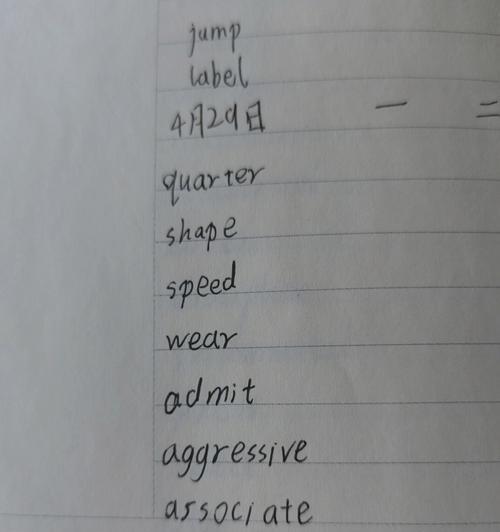 jump
label
4月29日 一 二
quarter
shape
speed
wear
admit
aggressive
associate